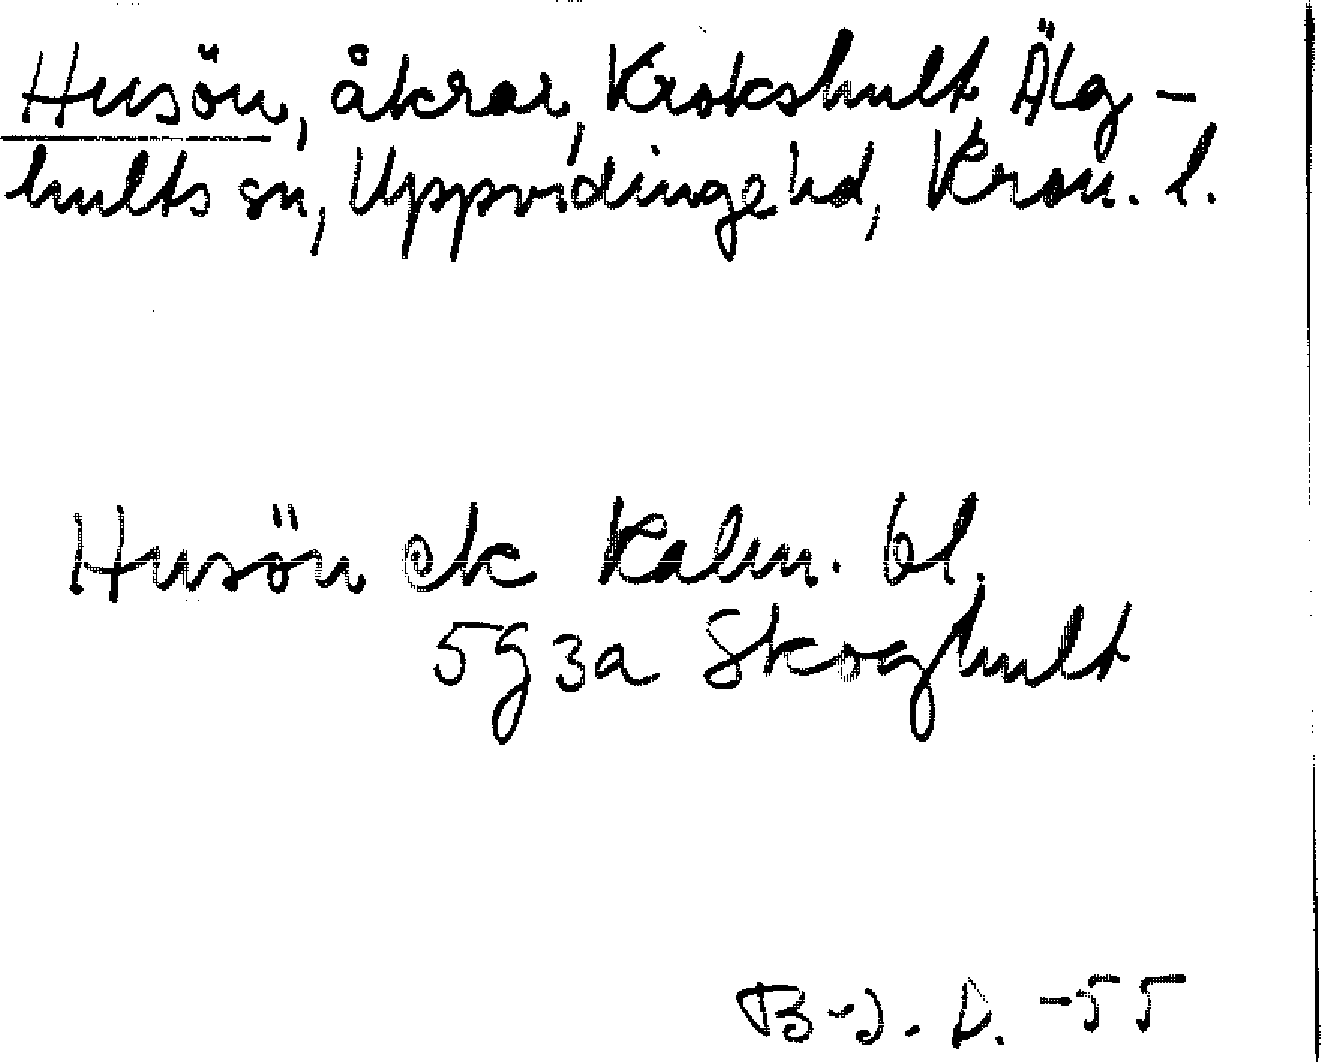 Husön, åkrar, Krokshult Älg-
hults sn, Uppvidinge hd, Kron. l.
Husön ek Kalm. bl.
5g3a Skoghult
B-J. D. -55